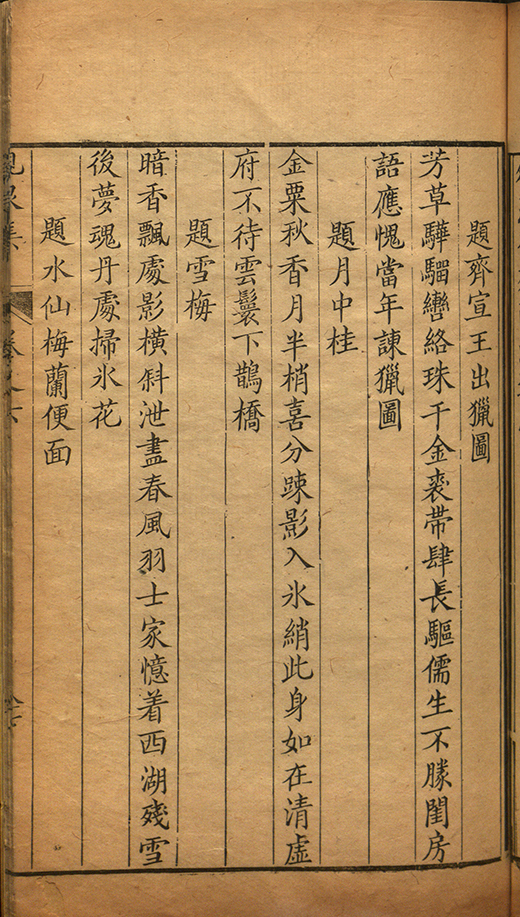 題齊宣王出獵圖
芳草驊騮轡絡珠千金裘帶肆長驅儒生不勝閨房
語應愧當年諫獵圖
題月中桂
金粟秋香月半梢喜分踈影入氷綃此身如在清虛
府不待雲鬟下鵲橋
題雪梅
暗香飄處影橫斜泄盡春風羽士家憶着西湖殘雪
後夢魂丹處掃氷花
題水仙梅蘭便面